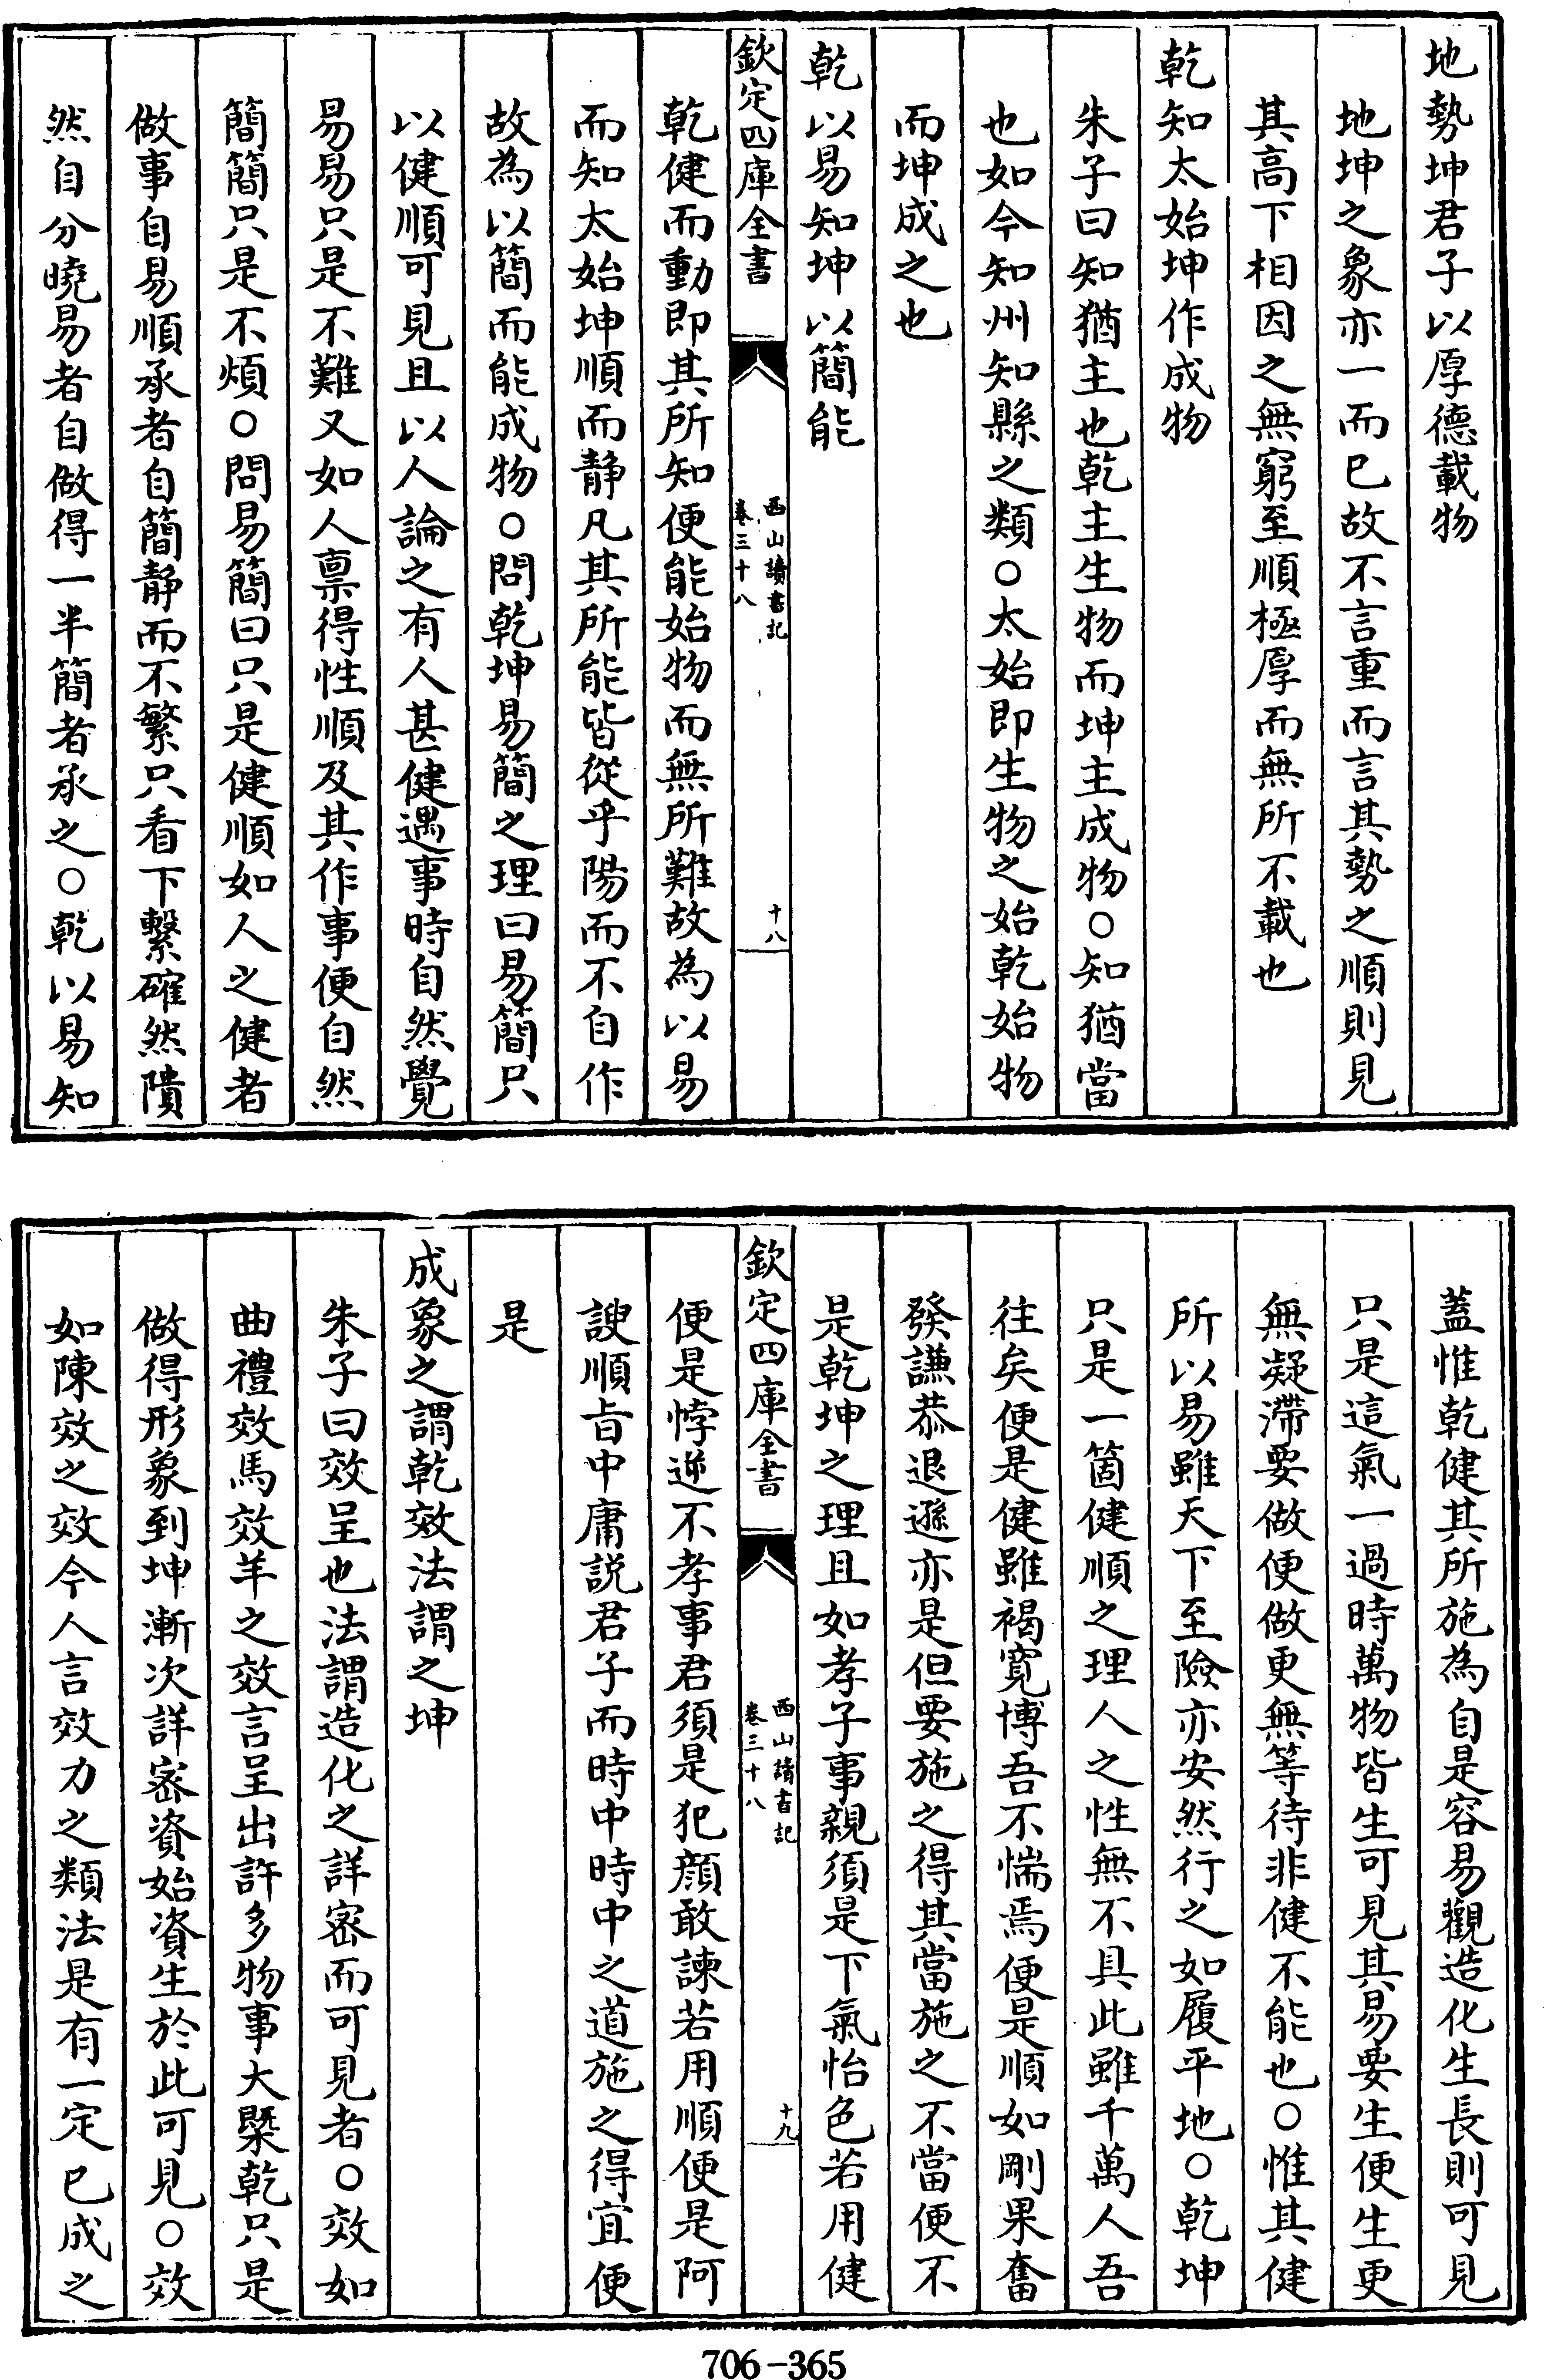 地勢坤君子以厚德載物
地坤之象亦一而已故不言重而言其勢之順則見
其高下相因之無窮至順極厚而無所不載也
乾知太始坤作成物
朱子曰知猶主也乾主生物而坤主成物○知猶當
也如今知州知縣之類○太始即生物之始乾始物
而坤成之也
乾以易知坤以簡能
欽定四庫全書
西山讀書記
卷三十八
十八
乾健而動即其所知便能始物而無所難故為以易
而知太始坤順而靜凡其所能皆從乎陽而不自作
故為以簡而能成物○問乾坤易簡之理曰易簡只
以健順可見且以人論之有人甚健遇事時自然覺
易易只是不難又如人禀得性順及其作事便自然
簡簡只是不煩○問易簡曰只是健順如人之健者
做事自易順承者自簡靜而不繁只看下繫確然隤
然自分曉易者自做得一半簡者承之○乾以易知
蓋惟乾健其所施為自是容易觀造化生長則可見
只是這氣一過時萬物皆生可見其易要生便生更
無凝滯要做便做更無等待非健不能也○惟其健
所以易雖天下至險亦安然行之如履平地○乾坤
只是一箇健順之理人之性無不具此雖千萬人吾
往矣便是健雖褐寬博吾不惴焉便是順如剛果奮
發謙恭退遜亦是但要施之得其當施之不當便不
是乾坤之理且如孝子事親須是下氣怡色若用健
欽定四庫全書
西山讀書記
卷三十八
十九
便是悖逆不孝事君須是犯顔敢諫若用順便是阿
諛順旨中庸説君子而時中時中之道施之得宜便
是
成象之謂乾效法謂之坤
朱子曰效呈也法謂造化之詳密而可見者○效如
曲禮效馬效羊之效言呈出許多物事大槩乾只是
做得形象到坤漸次詳密資始資生於此可見○效
如陳效之效今人言效力之類法是有一定已成之
706-365